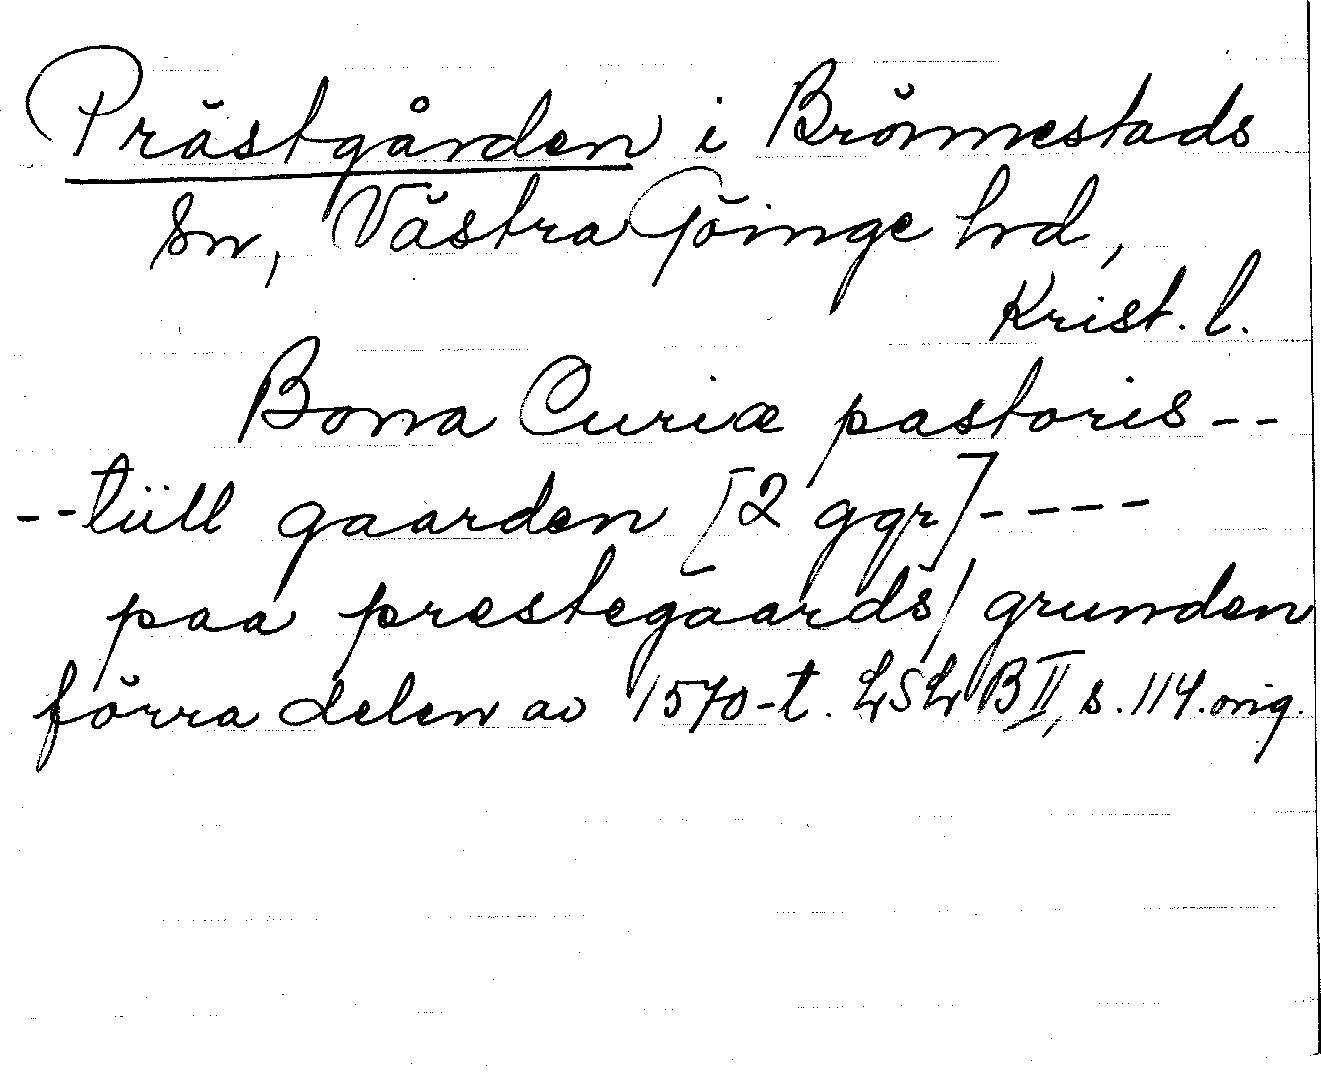 Prästgården i Brönnestads
sn, Västra Göinge hd,
Krist. l.
Bona Curiæ pastoris --
-- tiill gaarden [2 ggr] ----
paa prestegaards/grunden
förra delen av 1570-t. LSL B II, s. 114. orig.